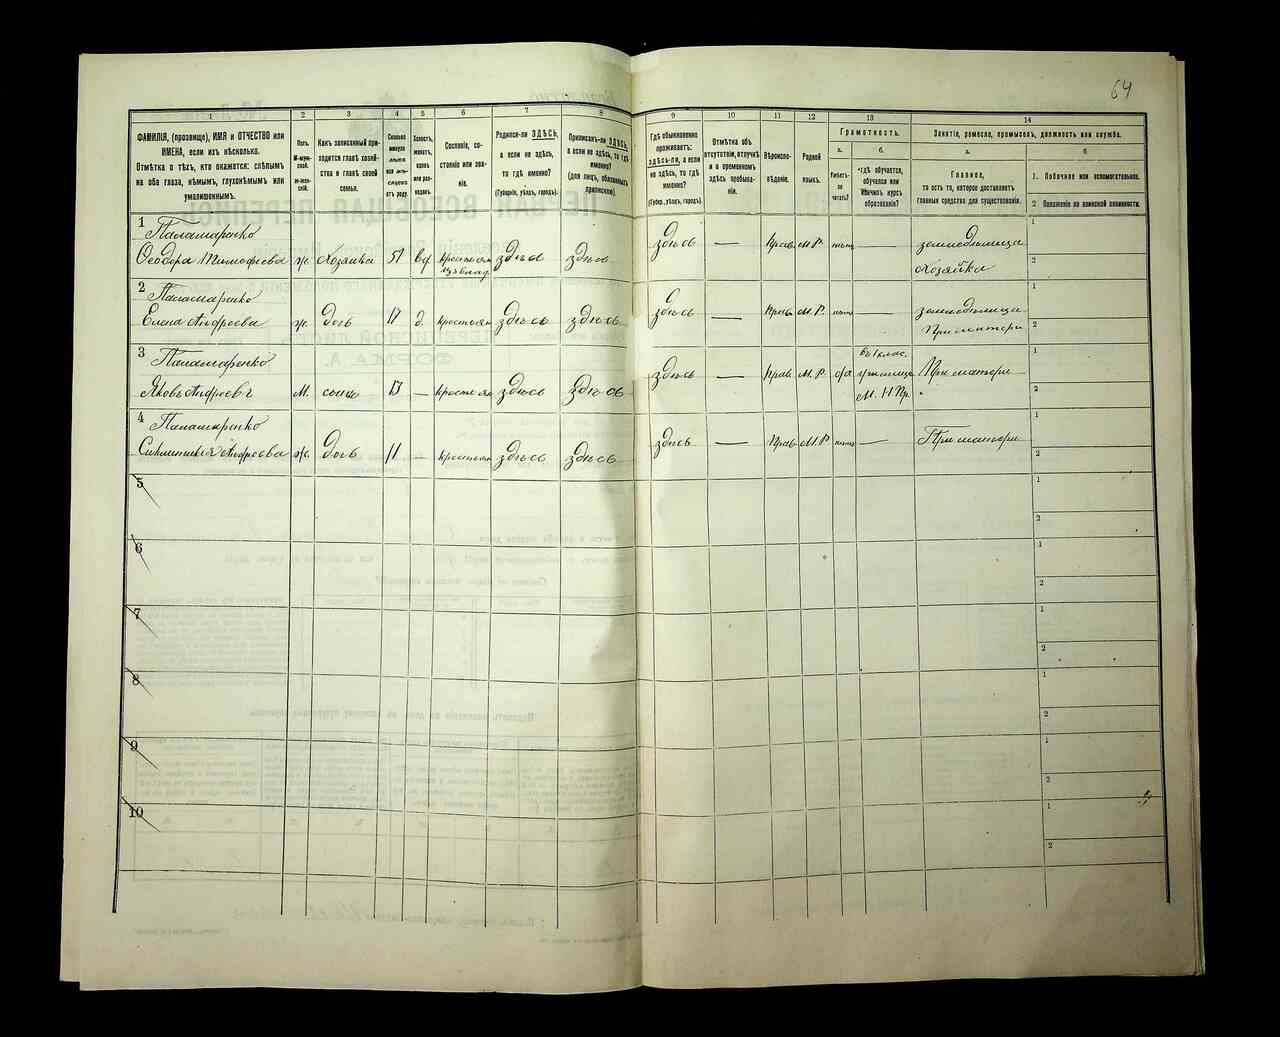 64
1 2 3 4 5 6 7 8 9 10 11 12 13 14
ФАМИЛІЯ, (прозвище), ИМЯ и ОТЧЕСТВО или
ИМЕНА, если ихъ нѣсколько.
Отмѣтка о тѣхъ, кто окажется: слѣпымъ
на оба глаза, нѣмымъ, глухонѣмымъ или
умалишеннымъ.
Полъ.
М-мужской.
Ж-женскій.
Какъ записанный при-
ходится главѣ хозяй-
ства и главѣ своей
семьи.
Сколько
минуло
лѣтъ
или мѣ-
сяцевъ
отъ роду
Холостъ,
женатъ,
вдовъ
или раз-
веденъ.
Сословіе, со-
стояніе или зва-
ніе.
Родился-ли ЗДѢСЬ,
а если не здѣсь,
то гдѣ именно?
(Губернія, уѣздъ, городъ).
Приписанъ-ли ЗДѢСЬ,
а если не здѣсь, то гдѣ
именно?
(для лицъ, обязанныхъ
припискою).
Гдѣ обыкновенно
проживаетъ:
ЗДѢСЬ-ли, а если
не здѣсь, то гдѣ
именно?
(Губерн., уѣздъ, городъ).
Отмѣтка объ
отсутствіи, отлучкѣ
и о временномъ
здѣсь пребыва-
ніи.
Вѣроиспо-
вѣданіе.
Родной
языкъ.
Грамотность.
а.
Умѣетъ-
ли
читать?
б.
гдѣ обучается,
обучался или
кончилъ курсъ
образованія?
Занятіе, ремесло, промыселъ, должность или служба.
а.
Главное,
то есть то, которое доставляетъ
главныя средства для существованія.
б
1. Побочное или вспомогательное.
2 Положеніе по воинской повинности.
1
Паламаренко
Ѳеодора Тимофѣева ж. хозяйка 51 вд. крестьян. здѣсь здѣсь здѣсь — Прав. М.Р. — земледѣлица
хозяйка
1
2
2
Паламаренко
Елена Андреева ж. дочь 17 д. крестьян. здѣсь здѣсь здѣсь — Прав. М.Р. — земледѣлица
При матери
1
2
3
Паламаренко
Яковъ Андреевъ М. сынъ 13 — крестьян. здѣсь здѣсь здѣсь — Прав. М.Р. да
въ 1 клас.
училища
М. Н. Пр.
При матери
1
2
4
Паламаренко
Андреева ж. дочь 11 — крестьян. здѣсь здѣсь здѣсь — Прав. М.Р. — При матери
1
2
5
1
2
6
1
2
7
1
2
8
1
2
9
1
2
10
1
2